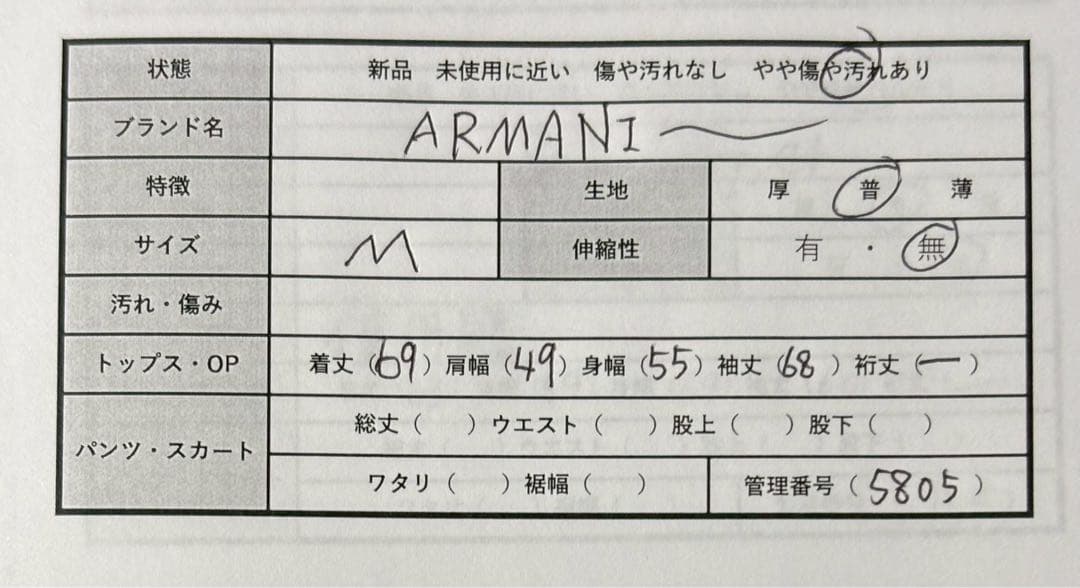 状態 新品 未使用に近い 傷や汚れなし やや傷や汚れあり
ブランド名 ARMANI
特徴 生地 厚 普 薄
サイズ M 伸縮性 有 ・ 無
汚れ・傷み
トップス・OP 着丈（69）肩幅（49）身幅（55）袖丈（68）裄丈（ー）
パンツ・スカート 総丈（ ）ウエスト（ ）股上（ ）股下（ ）
ワタリ（ ）裾幅（ ） 管理番号（5805）